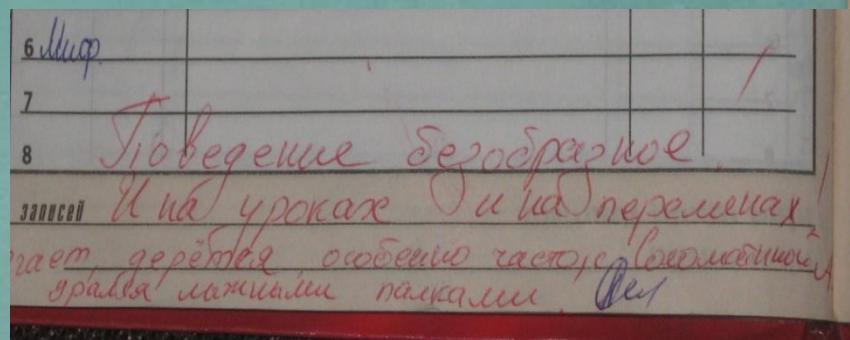 6 Миф.
7
8 Поведение безобразное!
записей И на уроках и на переменах
гает, дерётся особенно часто, с
дрался лыжными палками.